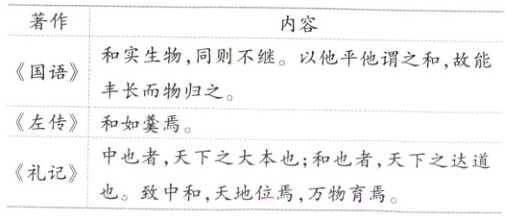 著作 内容
《国语》 和实生物,同则不继。以他平他谓之和,故能
丰长而物归之。
《左传》 和如羹焉。
《礼记》 中也者,天下之大本也;和也者,天下之达道
也。致中和,天地位焉,万物育焉。